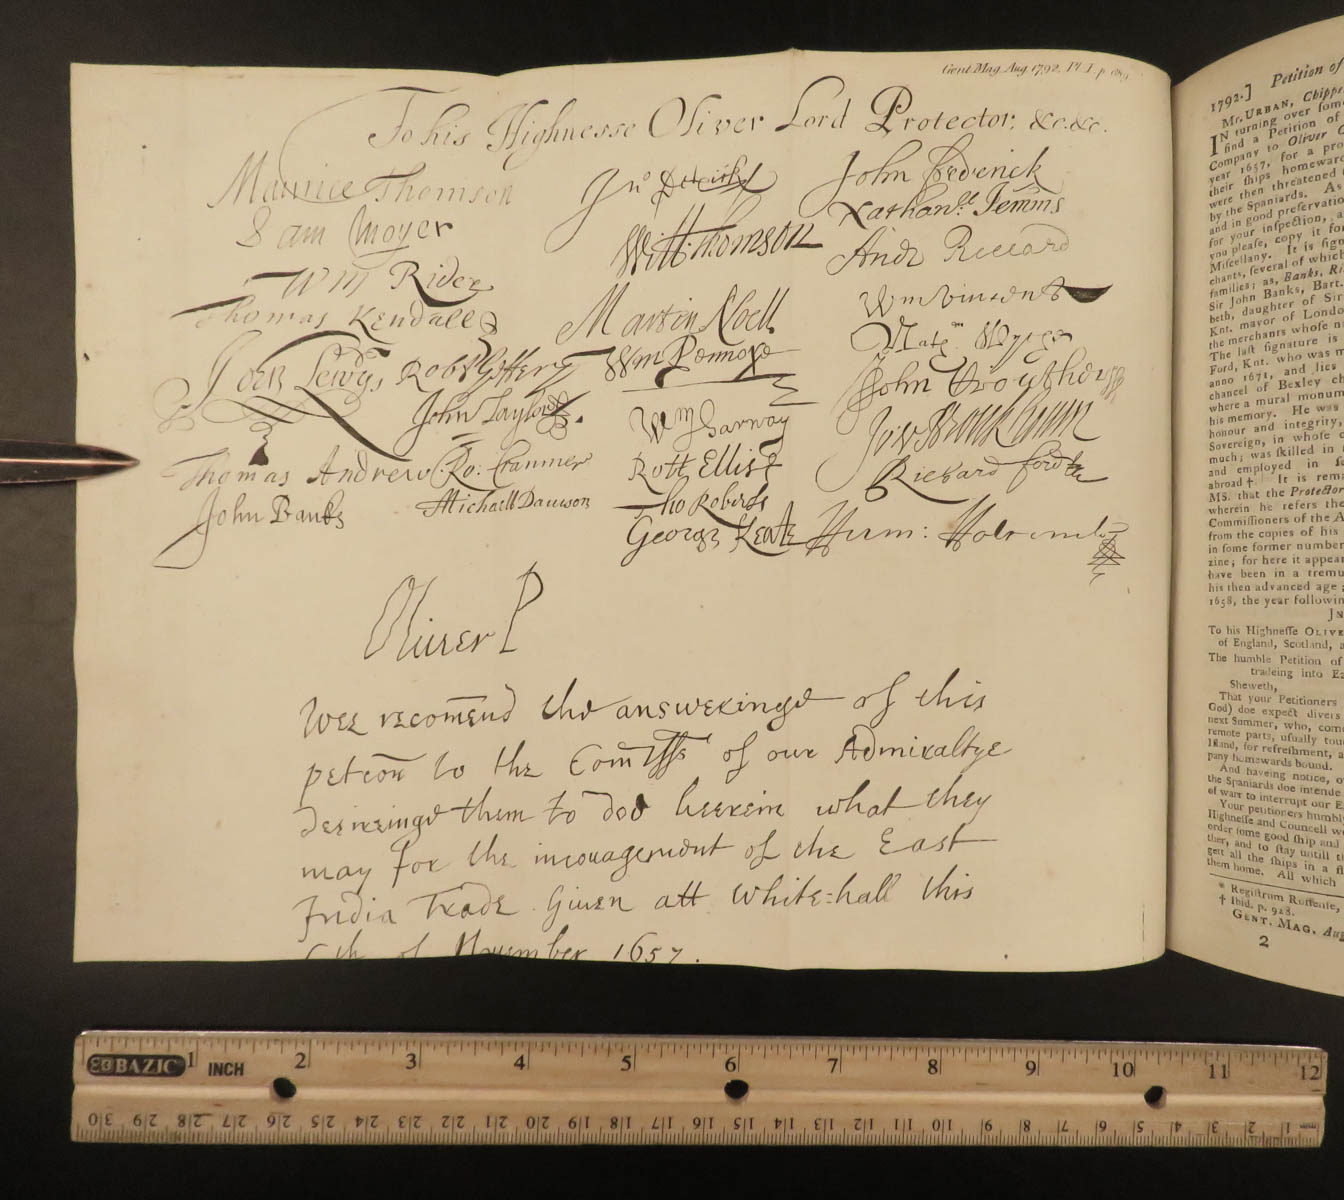 Gent. Mag. Aug. 1792. Pl. I. p.
To his Highnesse Oliver Lord Protector, &c. &c.
Maurice Thomson
Sam Moyer
Wm Rider
Thomas Kendall
John Lewys
Thomas Andrew
John Banks
John Taylor
Ro: Cranmer
Michaell Dawson
Jno
Will Thomson
Martin Noell
Wm Pennoye
Wm Garway
Robt Ellis
Tho Roberts
George Keate
John Frederick
Nathanll Jemms
Andr Riccard
Wm Vincent
Nath Wyche
John
Richard ford
Hum:
Oliver P
Wee recomend the answeringe of this
petion to the Comrs of our Admiraltye
desireinge them to doe heerein what they
may for the incouragement of the East
India Trade Given att White-hall this
of November 1657.
1792.] Petition of
Mr. URBAN, Chippe
IN turning over some
find a Petition of
Company to Oliver
year 1657, for a pro
their ships homeward
were then threatened
by the Spaniards. As
and in good preservation
for your inspection, a
you please, copy it for
Miscellany. It is sign
chants, several of which
families; as, Banks, Ri
Sir John Banks, Bart.
beth, daughter of Sir
Knt. mayor of London
the merchants whose n
The last signature is
Ford, Knt. who was m
anno 1671, and lies
chancel of Bexley ch
where a mural monum
his memory. He was
honour and integrity,
Sovereign, in whose c
much; was skilled in
and employed in
abroad †. It is rema
MS. that the Protector
wherein he refers the
Commissioners of the A
from the copies of his
in some former number
zine; for here it appear
have been in a tremu
his then advanced age;
1658, the year followin
JN
To his Highnesse OLIVE
of England, Scotland, a
The humble Petition of
tradeing into Ea
Sheweth,
That your Petitioners
God) doe expect divers
next Summer, who, com
remote parts, usually tou
Island, for refreshment, a
pany homewards bound.
And haveing notice, o
the Spaniards doe intende
of warr to interrupt our E
Your petitioners humbl
Highnesse and Councell w
order some good ship and
ther, and to stay untill t
gett all the ships in a fl
them home. All which
* Registrum Roffense,
† Ibid. p. 928.
GENT. MAG. Aug
2
BAZIC 1 INCH 2 3 4 5 6 7 8 9 10 11 12
30 29 28 27 26 25 24 23 22 21 20 19 18 17 16 15 14 13 12 11 10 9 8 7 6 5 4 3 2 1 mm